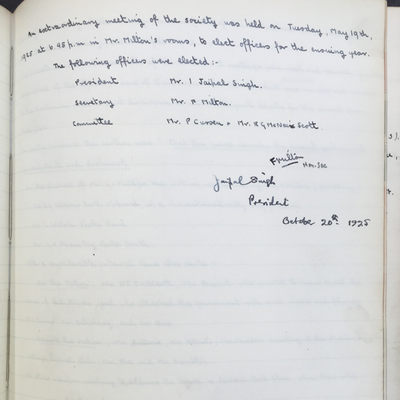 An extraordinary meeting of the society was held on Tuesday, May 19th,
1925 at 6.45 p.m in Mr. Milton's rooms, to elect offices for the ensuing year.
The following officers were elected :-
President Mr. I Jaipal Singh.
Secretary Mr. F Milton.
Committee Mr. P Curson & Mr. R G McNair Scott.
F Milton
Hon. Sec
Jaipal Singh
President
October 20th 1925